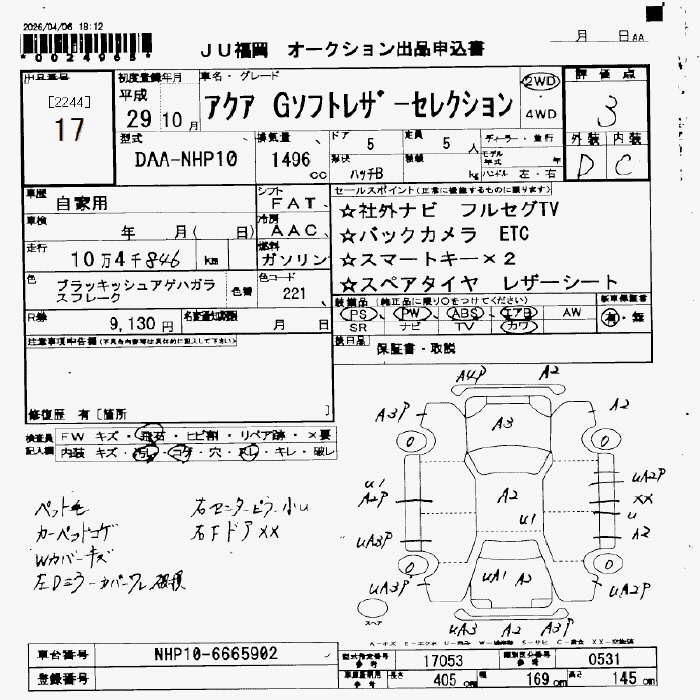 2026/04/06 19:12
*0024965*
JU福岡 オークション出品申込書
月 日AA
出品番号
[2244]
17
初度登録年月
平成
29 10月
車名・グレード
アクア Gソフトレザーセレクション
2WD
4WD
評価点
3
外装 内装
D C
型式
DAA-NHP10
排気量
1496
cc
ドア
5
定員
5 人
形状
ハッチB
積載
kg
ディーラー・並行
モデル年式 年
ハンドル 左・右
車歴
自家用
シフト
FAT
車検
年 月( 日)
冷房
AAC
走行
10万4千846 km
燃料
ガソリン
色
ブラッキッシュアゲハガラスフレーク
色替
色コード
221
R券
9,130円
名変通知期限
月 日
セールスポイント(正常に機能するものに限ります)
☆社外ナビ フルセグTV
☆バックカメラ ETC
☆スマートキー×2
☆スペアタイヤ レザーシート
装備品 (純正品に限り○をつけてください)
PS PW ABS エアB AW
SR ナビ TV カワ
新車保証書
有・無
後日品
保証書・取説
注意事項申告欄(不具合内容等は具体的に記入して下さい)
修復歴 有[箇所 ]
検査員記入欄
FW キズ・飛石・ヒビ割・リペア跡・×要
内装 キズ・汚レ・コゲ・穴・スレ・キレ・破レ
ペット毛
カーペットコゲ
Wカバーキズ
左Dミラーカバーワレ破損
右センターピラー小U
右FドアXX
A4P A2
A3P A3 A2
U1
A2P A2 UA2P
XX
U1 U
UA3P A2
UA1 A2
UA3P UA2P
UA3 A2 A3P
スペア
車台番号
NHP10-6665902
登録番号
型式指定番号 参考
17053
類別区分番号 参考
0531
長さ 405 cm
幅 169 cm
高さ 145 cm